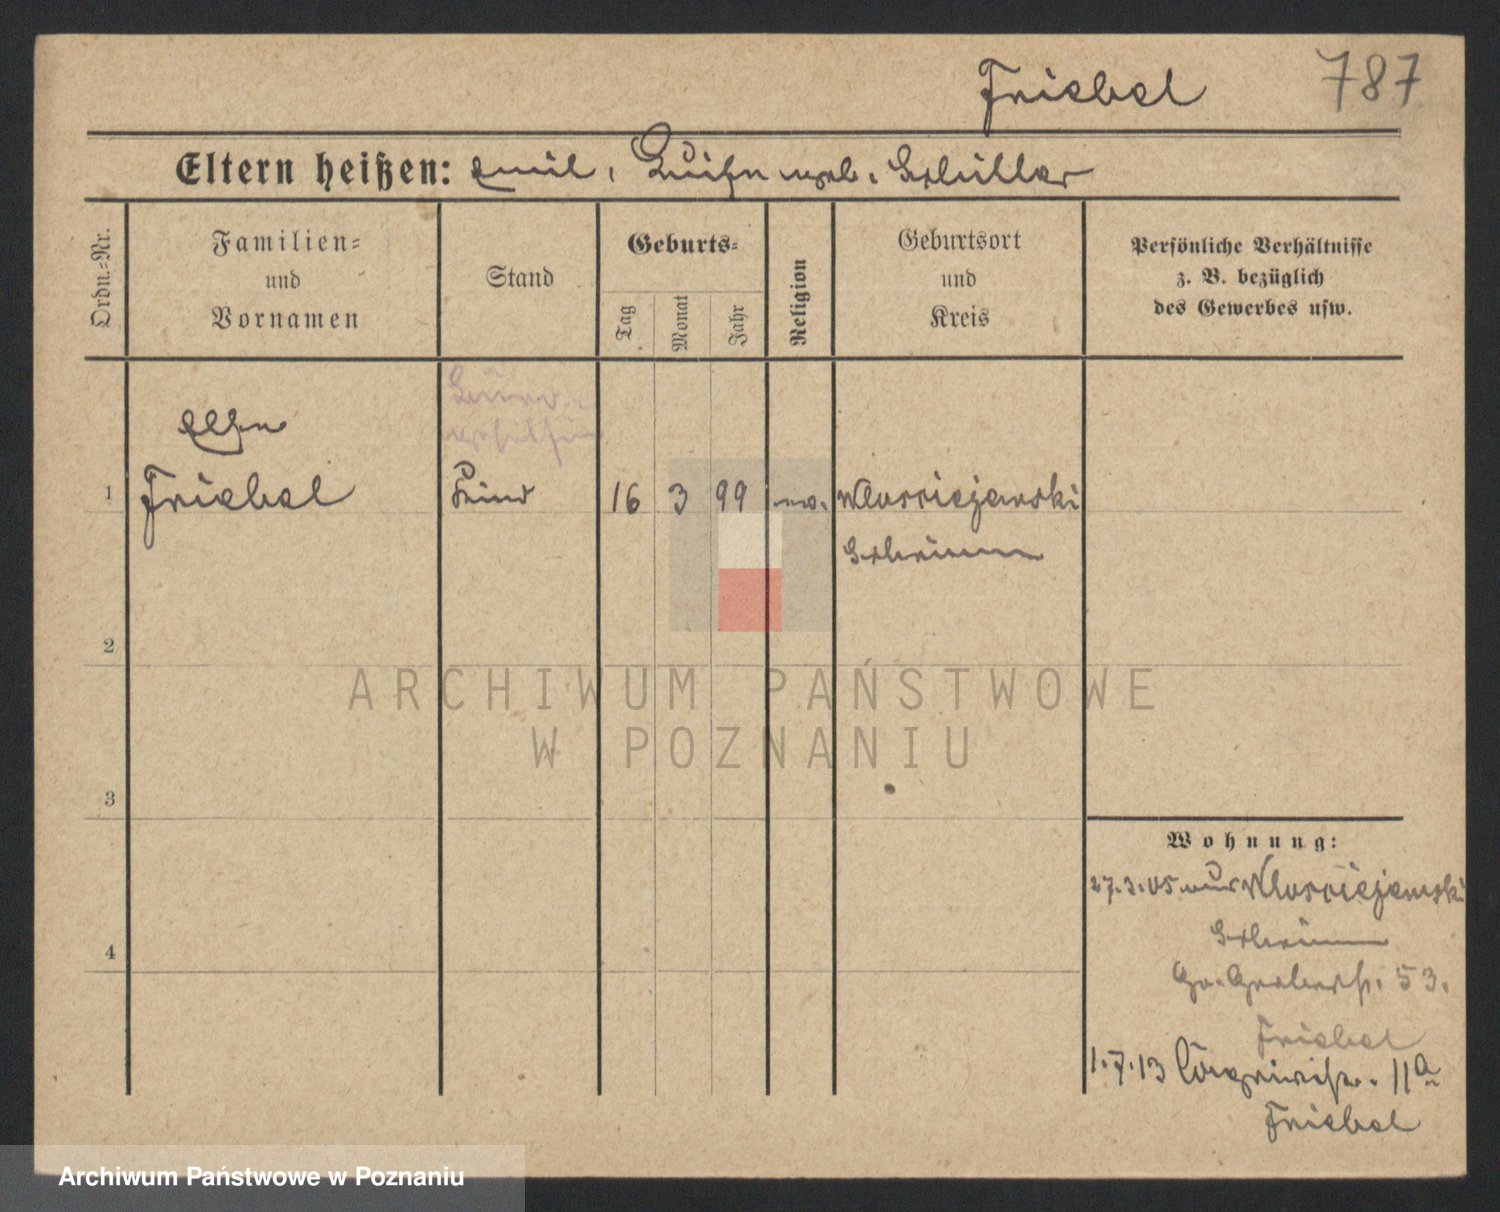 Friebel 787
Eltern heißen: Emil, Luise geb. Schiller
Ordn.=Nr.
Familien=
und
Vornamen
Stand
Geburts=
Tag
Monat
Jahr
Religion
Geburtsort
und
Kreis
Persönliche Verhältnisse
z. B. bezüglich
des Gewerbes usw.
Else
1 Friebel Kind 16 3 99 ev. Wlosciejewski
Schrimm
2
3
4
Wohnung:
27.3.05 aus Wlosciejewski
Schrimm
Gr. Gerberstr. 53.
Friebel
1.7.13 11a
Friebel
ARCHIWUM PAŃSTWOWE
W POZNANIU
Archiwum Państwowe w Poznaniu